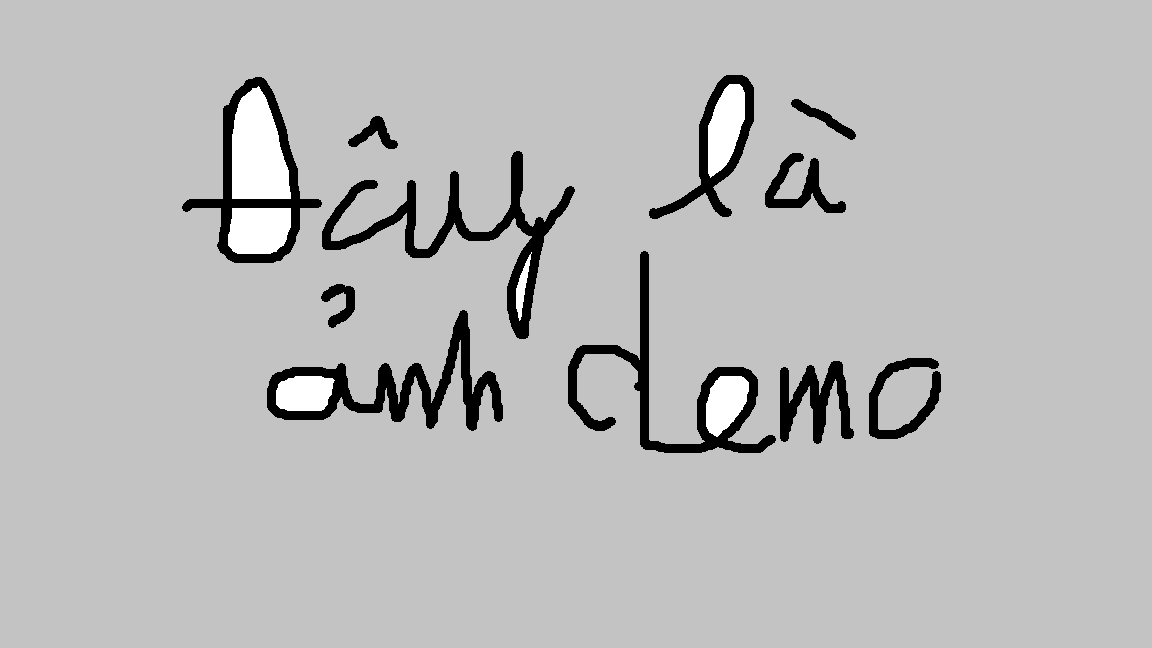 Đây là
ảnh demo